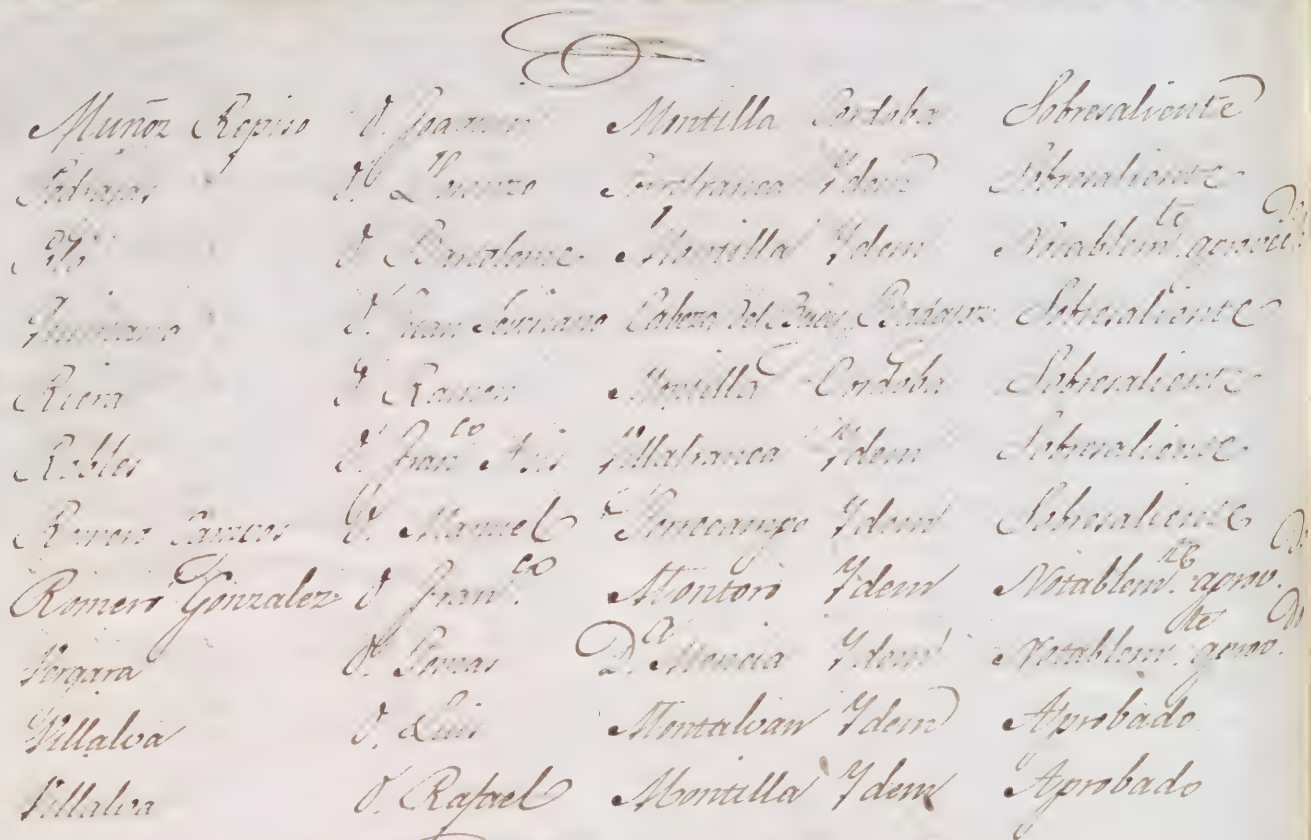 Muñoz Repiso D. Joaquin Montilla Cordoba Sobresaliente
Pedrajas D. Lorenzo Idem Sobresaliente
D. Bartolome Montilla Ydem Notablem.te aprovec.do
D. Juan Cabeza del Buey Badajoz Sobresaliente
Riera D. Ramon Montilla Cordoba Sobresaliente
Robles D. Fran.co Asis Villafranca Ydem Sobresaliente
Romero Campos D. Manuel Torrecampo Ydem Sobresaliente
Romero Gonzalez D. Fran.co Montoro Ydem Notablem.te aprov.
Vergara D. Tomas D.a Mencia Ydem Notablem.te aprov.
Villalva D. Luis Montalvan Ydem Aprobado
Villalva D. Rafael Montilla Ydem Aprobado